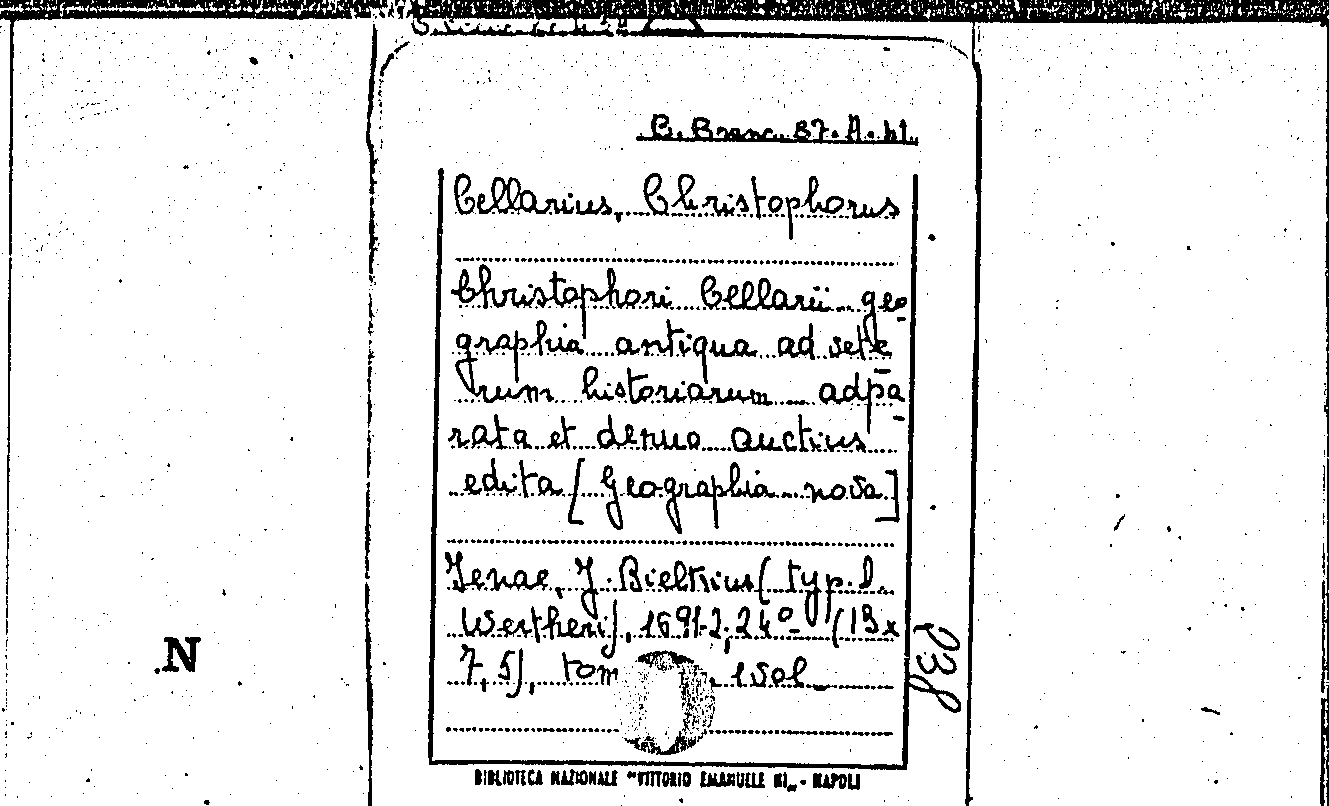 B. Branc. 87. A. 41.
Cellarius, Christophorus
Christophori Cellarii geo
graphia antiqua ad vete
rum historiarum adpa
rata et denuo auctius
edita [Geographia nova]
Jenae, J. Bielkius (typ. I.
Wertheri), 1691-2, 24° (13x
7,5), tom 1 vol
BIBLIOTECA NAZIONALE "VITTORIO EMANUELE III" - NAPOLI
N